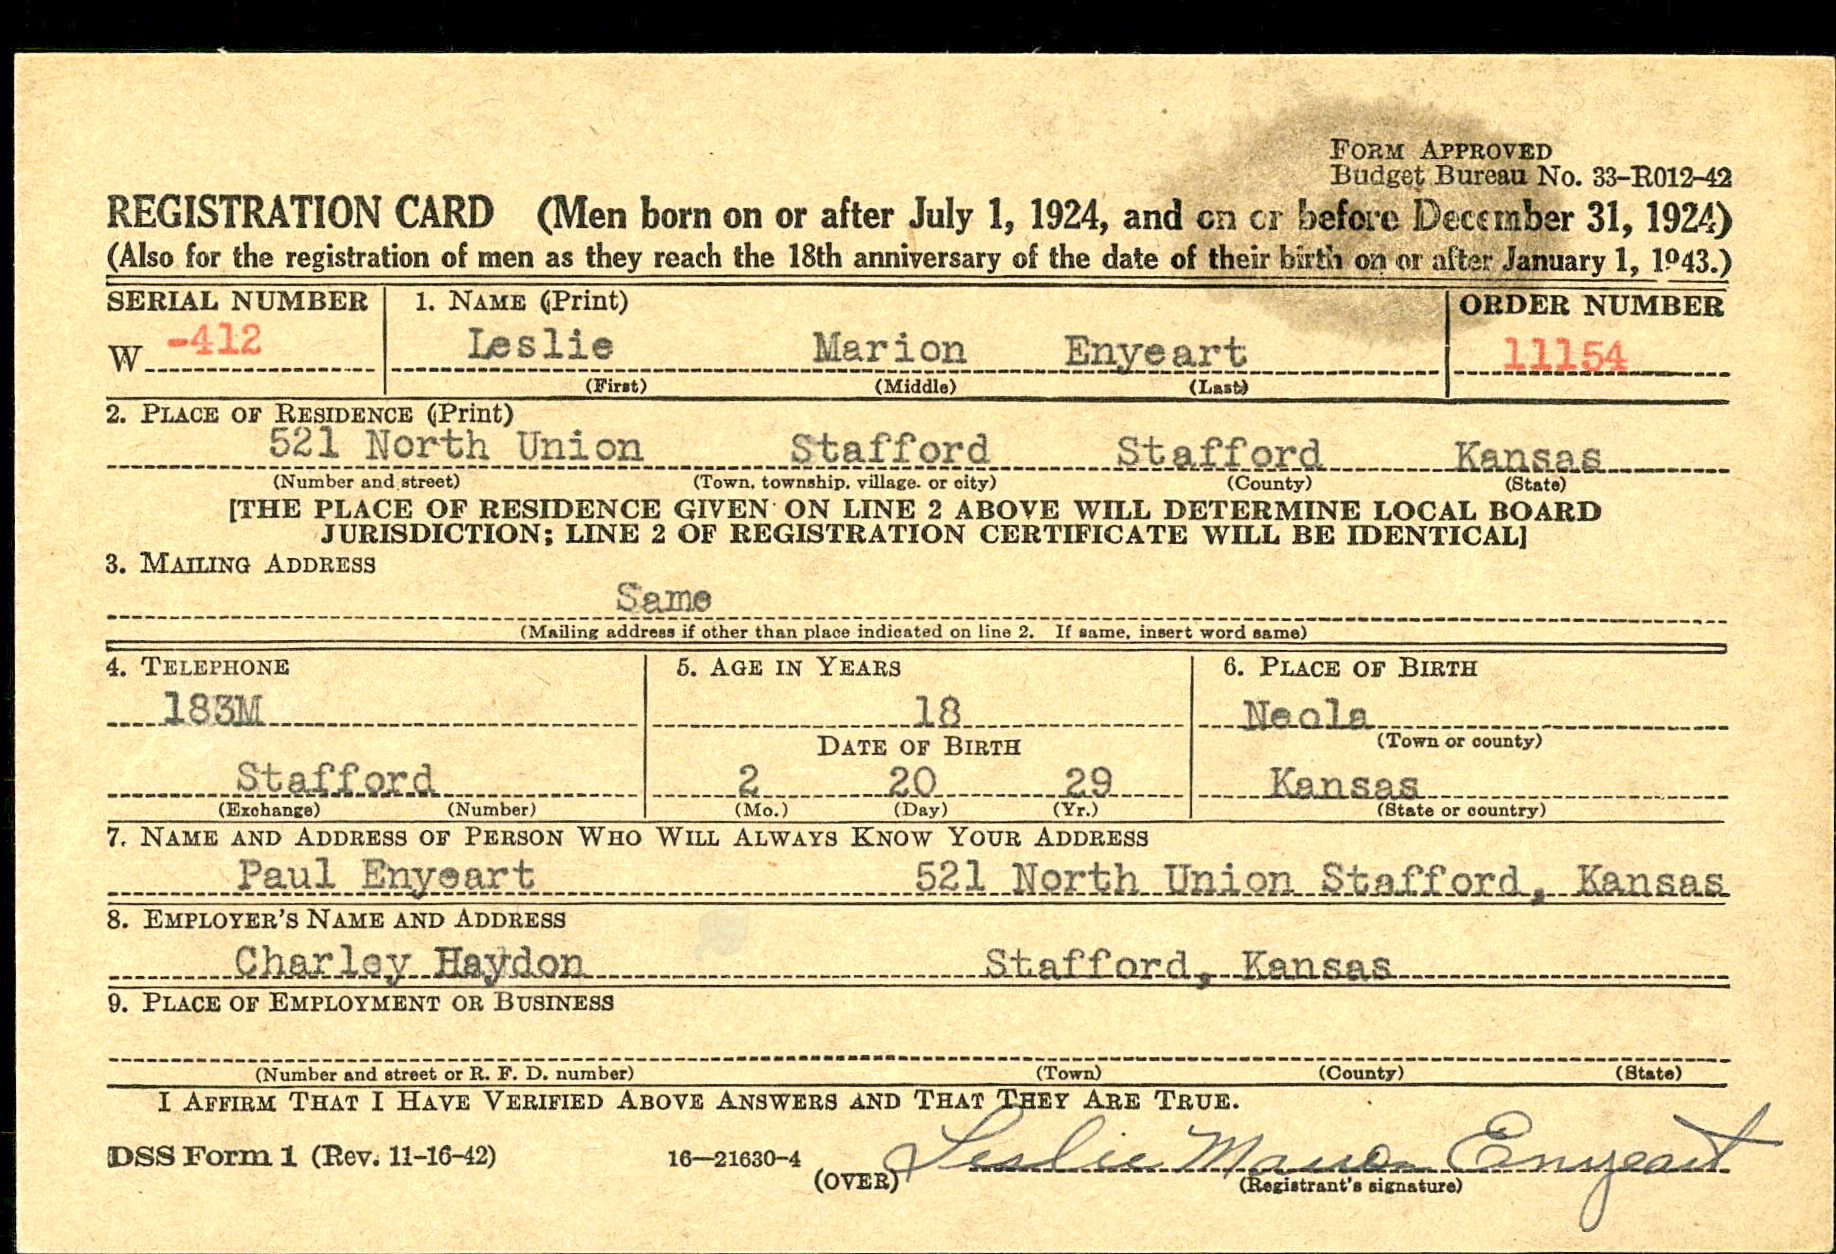 FORM APPROVED
Budget Bureau No. 33-R012-42
REGISTRATION CARD (Men born on or after July 1, 1924, and on or before December 31, 1924)
(Also for the registration of men as they reach the 18th anniversary of the date of their birth on or after January 1, 1943.)
SERIAL NUMBER 1. NAME (Print) ORDER NUMBER
W -412 Leslie Marion Enyeart 11154
(First) (Middle) (Last)
2. PLACE OF RESIDENCE (Print)
521 North Union Stafford Stafford Kansas
(Number and street) (Town, township, village, or city) (County) (State)
[THE PLACE OF RESIDENCE GIVEN ON LINE 2 ABOVE WILL DETERMINE LOCAL BOARD
JURISDICTION; LINE 2 OF REGISTRATION CERTIFICATE WILL BE IDENTICAL]
3. MAILING ADDRESS
Same
(Mailing address if other than place indicated on line 2. If same, insert word same)
4. TELEPHONE 5. AGE IN YEARS 6. PLACE OF BIRTH
183M 18 Neola
DATE OF BIRTH (Town or county)
Stafford 2 20 29 Kansas
(Exchange) (Number) (Mo.) (Day) (Yr.) (State or country)
7. NAME AND ADDRESS OF PERSON WHO WILL ALWAYS KNOW YOUR ADDRESS
Paul Enyeart 521 North Union Stafford, Kansas
8. EMPLOYER'S NAME AND ADDRESS
Charley Haydon Stafford, Kansas
9. PLACE OF EMPLOYMENT OR BUSINESS
(Number and street or R. F. D. number) (Town) (County) (State)
I AFFIRM THAT I HAVE VERIFIED ABOVE ANSWERS AND THAT THEY ARE TRUE.
DSS Form 1 (Rev. 11-16-42) 16—21630-4 (OVER) Leslie Marion Enyeart
(Registrant's signature)